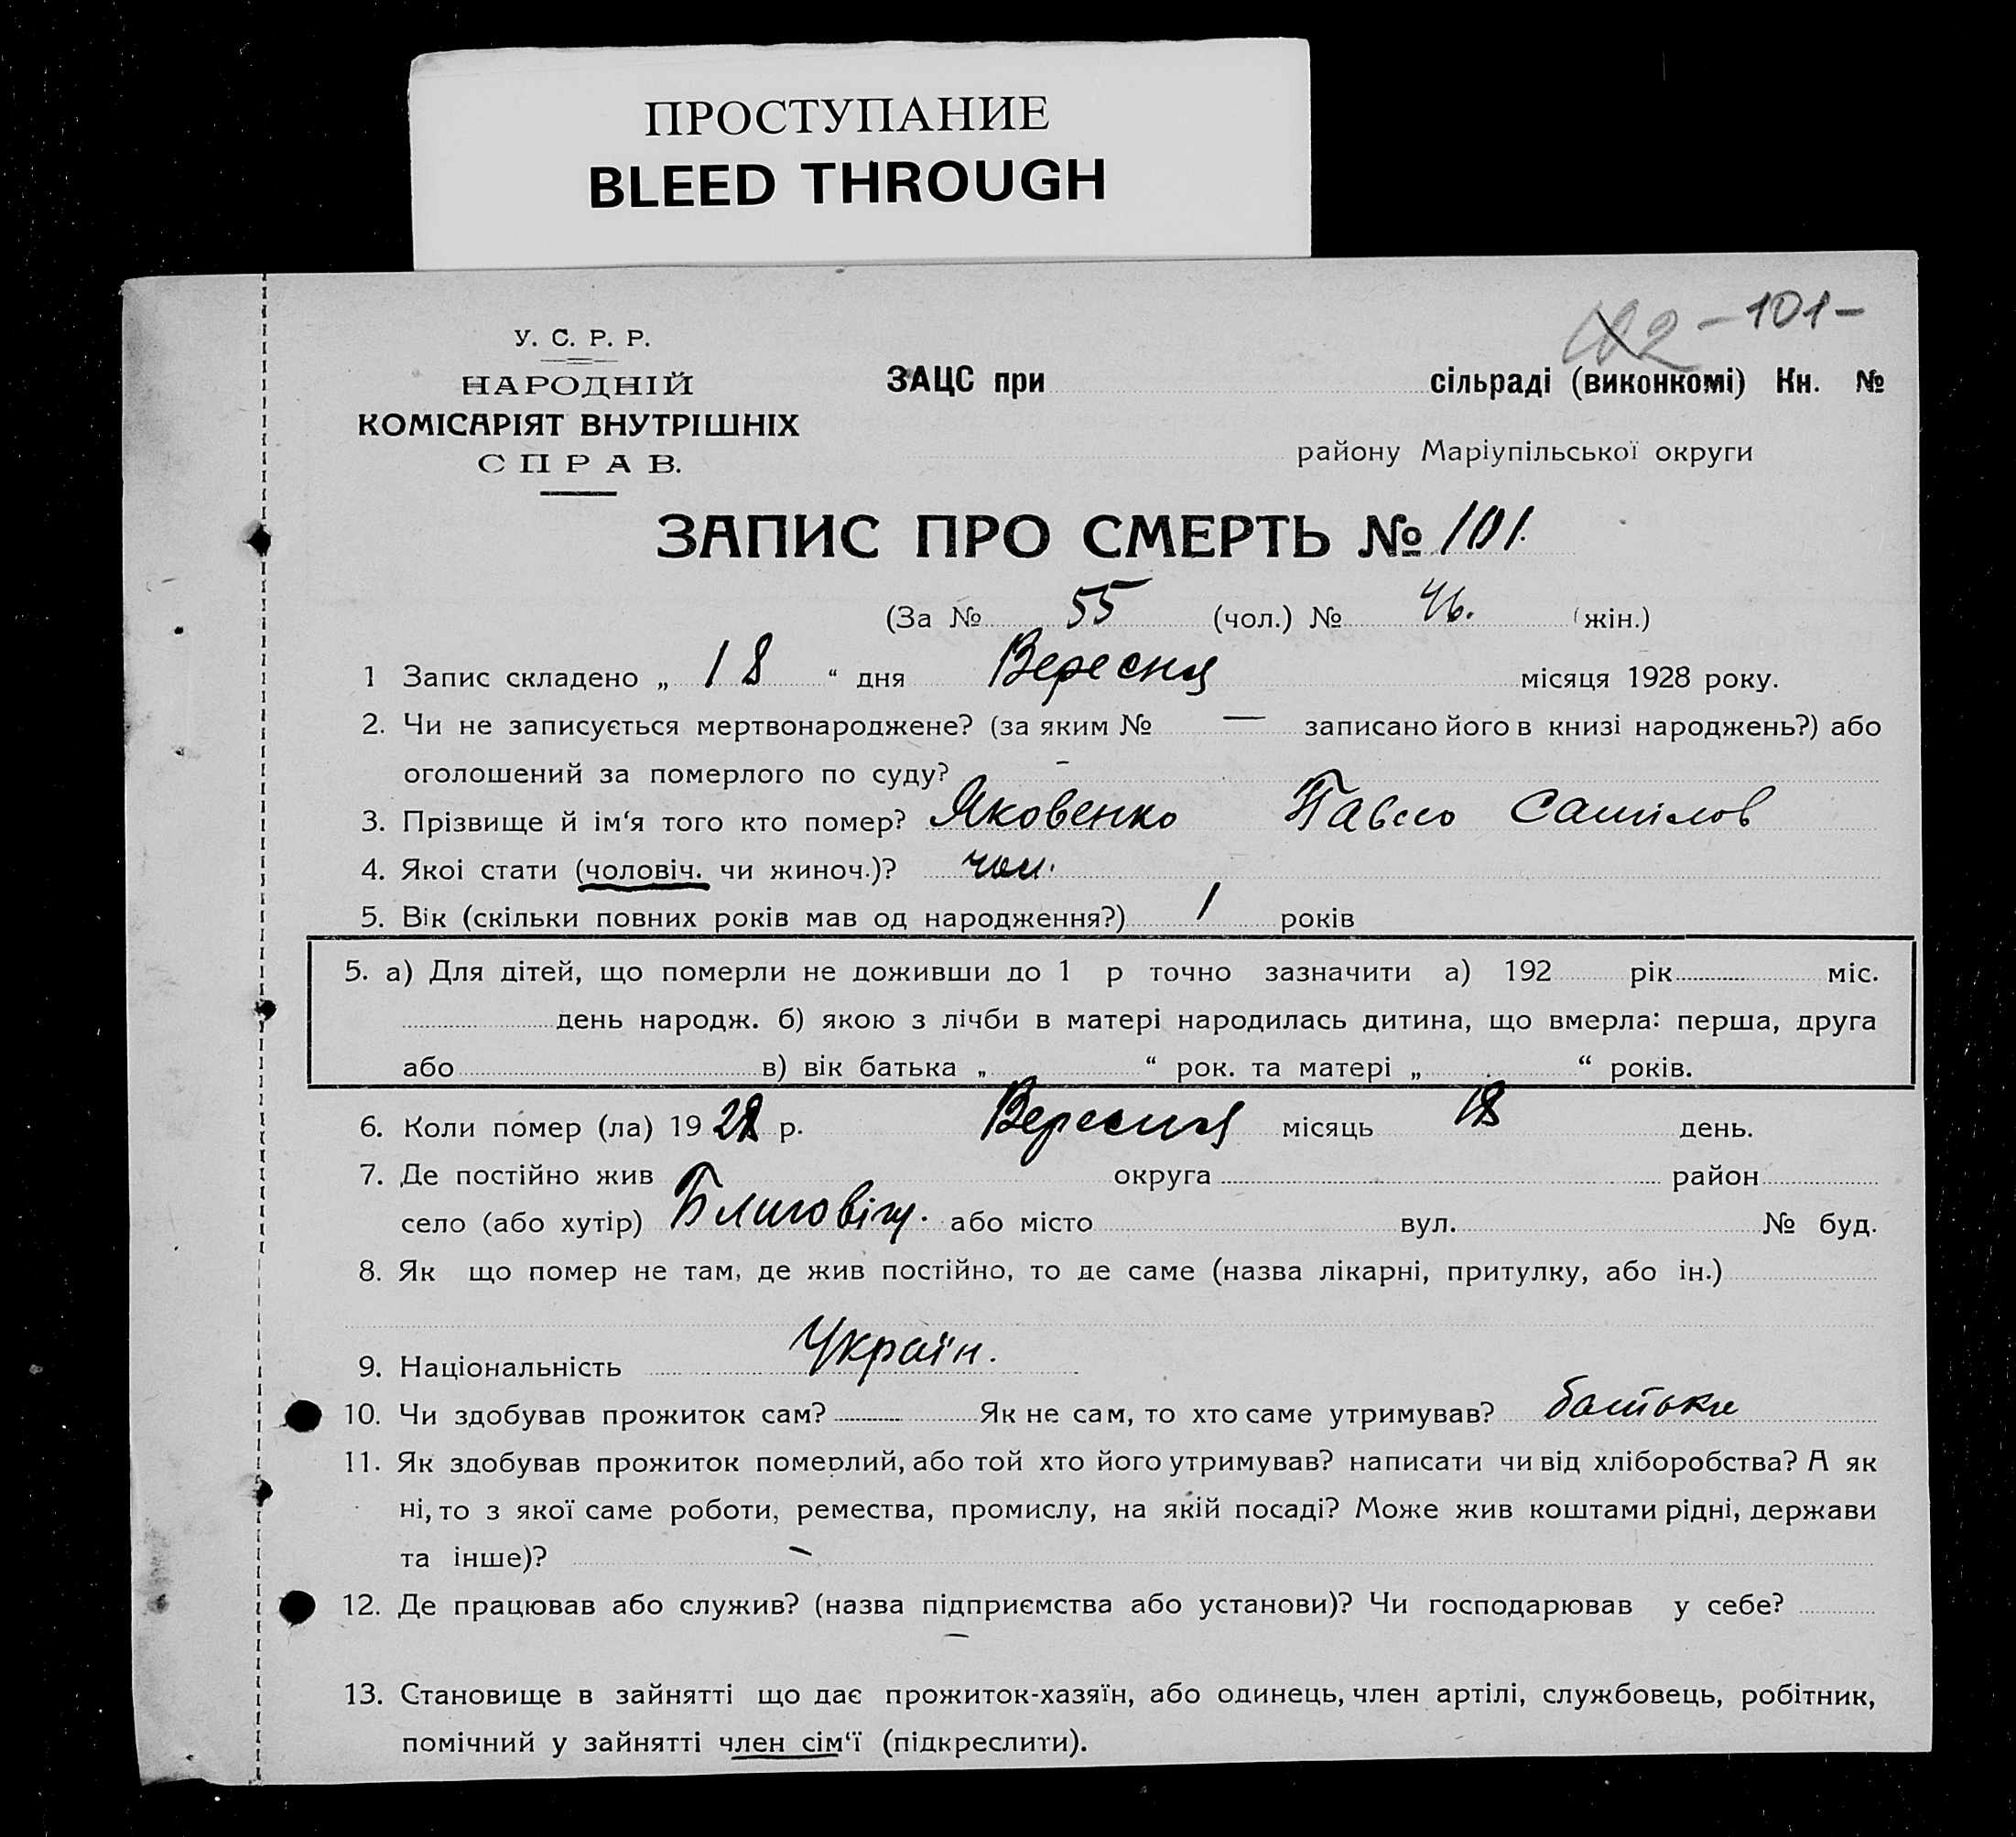 ПРОСТУПАНИЕ
BLEED THROUGH
102 - 101 -
У. С. Р. Р.
НАРОДНІЙ
КОМІСАРІЯТ ВНУТРІШНІХ
СПРАВ.
ЗАЦС при сільраді (виконкомі) Кн. №
району Маріупільської округи
ЗАПИС ПРО СМЕРТЬ № 101.
(За № 55 (чол.) № 46. (жін.)
1 Запис складено „ 18 “ дня Вересня місяця 1928 року.
2. Чи не записується мертвонароджене? (за яким № — записано його в книзі народжень?) або
оголошений за померлого по суду? -
3. Прізвище й ім‘я того кто помер? Яковенко Павло
4. Якоі стати (чоловіч. чи жиноч.)? чол.
5. Вік (скільки повних років мав од народження?) 1 років
5. а) Для дітей, що померли не доживши до 1 р точно зазначити а) 192 рік міс.
день народж. б) якою з лічби в матері народилась дитина, що вмерла: перша, друга
або в) вік батька „ “ рок. та матері „ “ років.
6. Коли помер (ла) 1928 р. Вересня місяць 18 день.
7. Де постійно жив округа район
село (або хутір) або місто вул. № буд.
8. Як що помер не там, де жив постійно, то де саме (назва лікарні, притулку, або ін.)
9. Національність Україн.
10. Чи здобував прожиток сам? Як не сам, то хто саме утримував? батьки
11. Як здобував прожиток померлий, або той хто його утримував? написати чи від хліборобства? А як
ні, то з якої саме роботи, ремества, промислу, на якій посаді? Може жив коштами рідні, держави
та інше)? -
12. Де працював або служив? (назва підприємства або установи)? Чи господарював у себе?
—
13. Становище в зайнятті що дає прожиток-хазяїн, або одинець, член артілі, службовець, робітник,
помічний у зайнятті член сім‘ї (підкреслити).